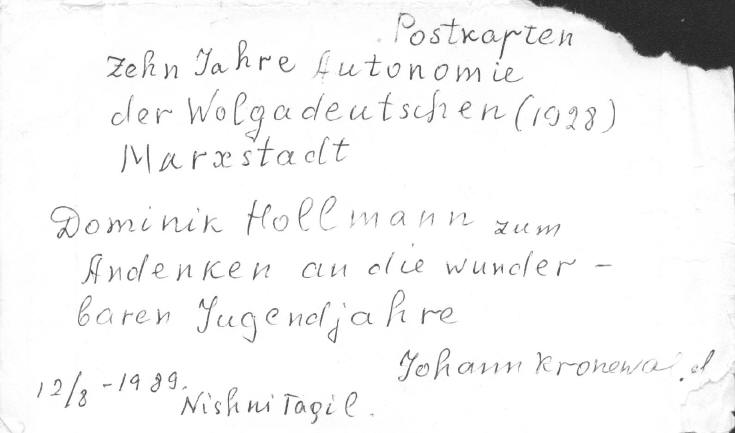 Postkarten
Zehn Jahre Autonomie
der Wolgadeutschen (1928)
Marxstadt
Dominik Hollmann zum
Andenken an die wunder-
baren Jugendjahre
Johann
12/8-1989.
Nishni Tagil.